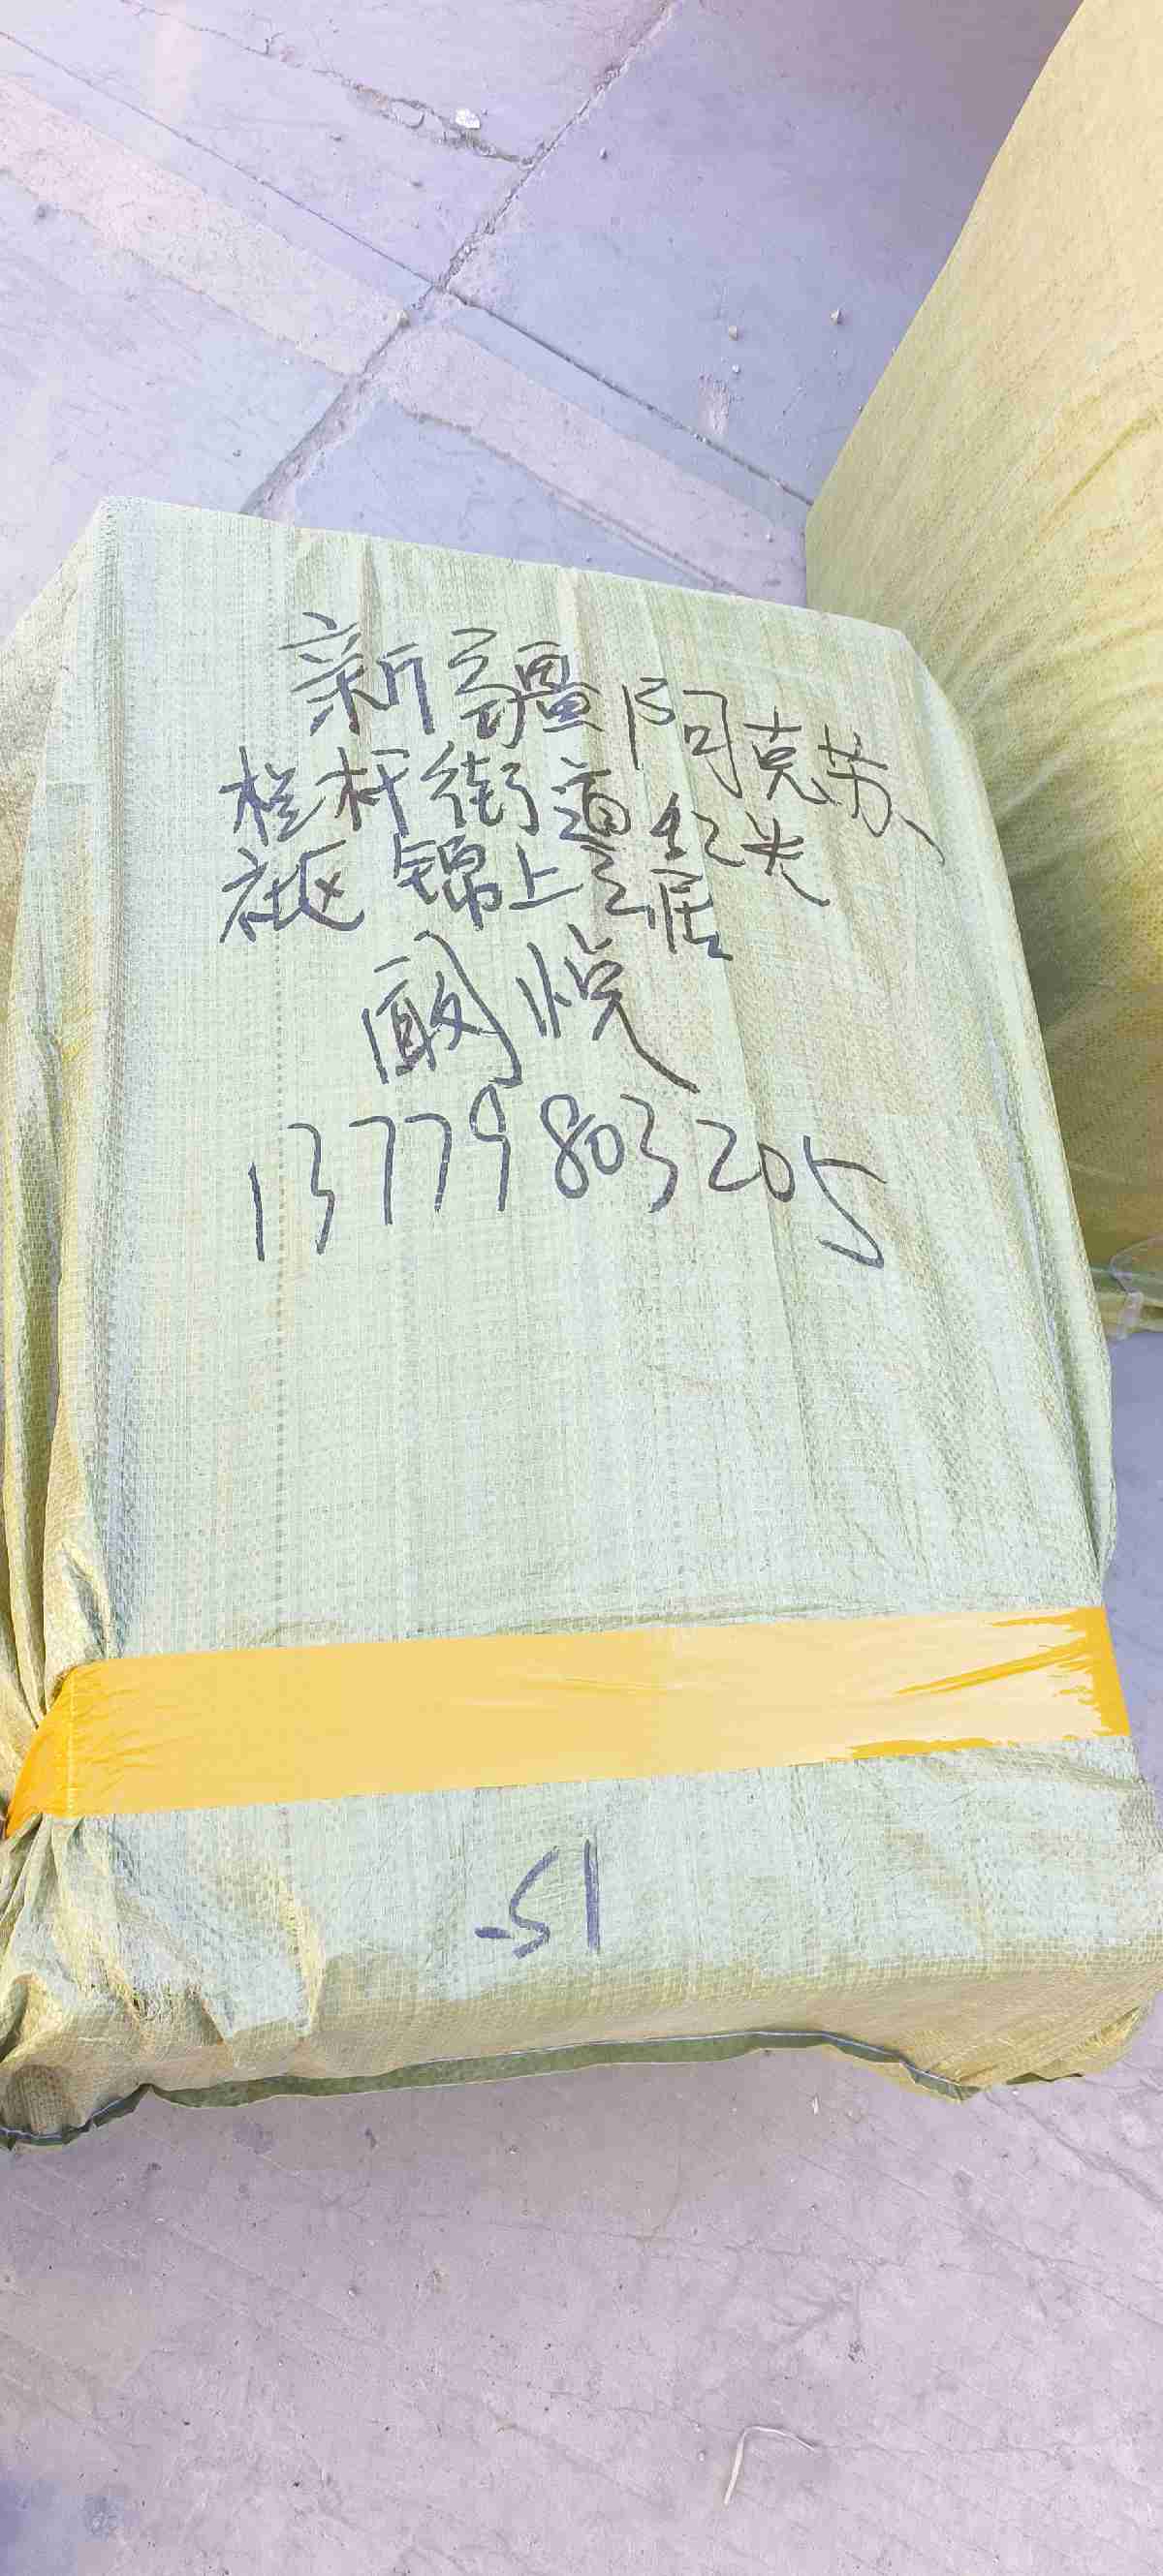 新疆阿克苏
栏杆街道红光
社区锦上云居
阚悦
13779803205
15-